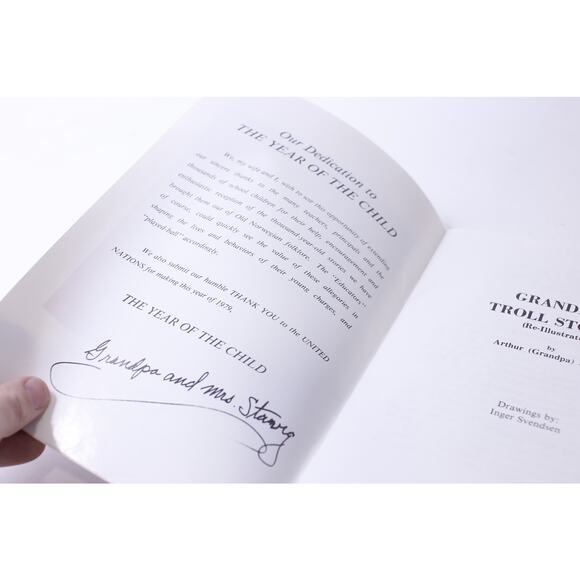 Our Dedication to
THE YEAR OF THE CHILD
We, my wife and I, wish to use this opportunity of extending
our sincere thanks to the many teachers, principals and the
thousands of school children for their help, encouragement and
enthusiastic reception of the thousand-year-old stories we have
brought them out of Old Norwegian folklore. The "Educators",
of course, could quickly see the value of these allegories in
shaping the lives and behaviors of their young charges, and
"played ball" accordingly.
We also submit our humble THANK YOU to the UNITED
NATIONS for making this year of 1979,
THE YEAR OF THE CHILD
Grandpa and Mrs. Stavig
GRAND
TROLL STO
(Re-Illustrat
by
Arthur (Grandpa)
Drawings by:
Inger Svendsen